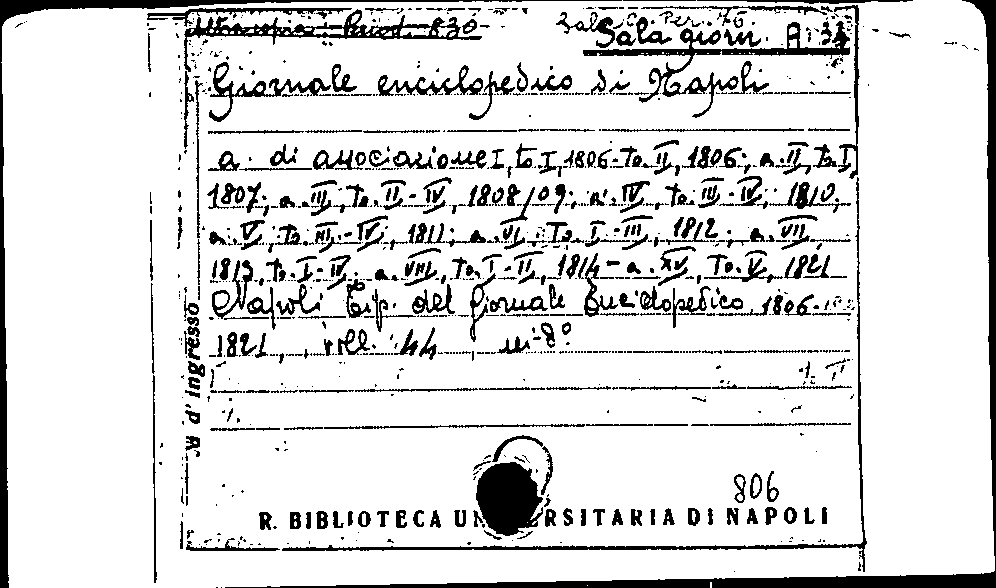 Altra copia: Period. 830
Sala C. Per. 76
Sala giorn. A 34
Giornale enciclopedico di Napoli
a. di associazione I, to I, 1806-To. II, 1806; a. II, To. I,
1807; a. III, To. II-IV, 1808/09; a. IV, To. III-IV, 1810;
a. V, To. III-IV, 1811; a. VI, To. I-III, 1812; a. VII,
1813, To. I-IV; a. VIII, To. I-II, 1814-a. XV, To. V, 1821
Napoli Tip. del Giornale Enciclopedico, 1806-
1821, voll. 44 in-8°
N d'ingresso
806
R. BIBLIOTECA UN ERSITARIA DI NAPOLI